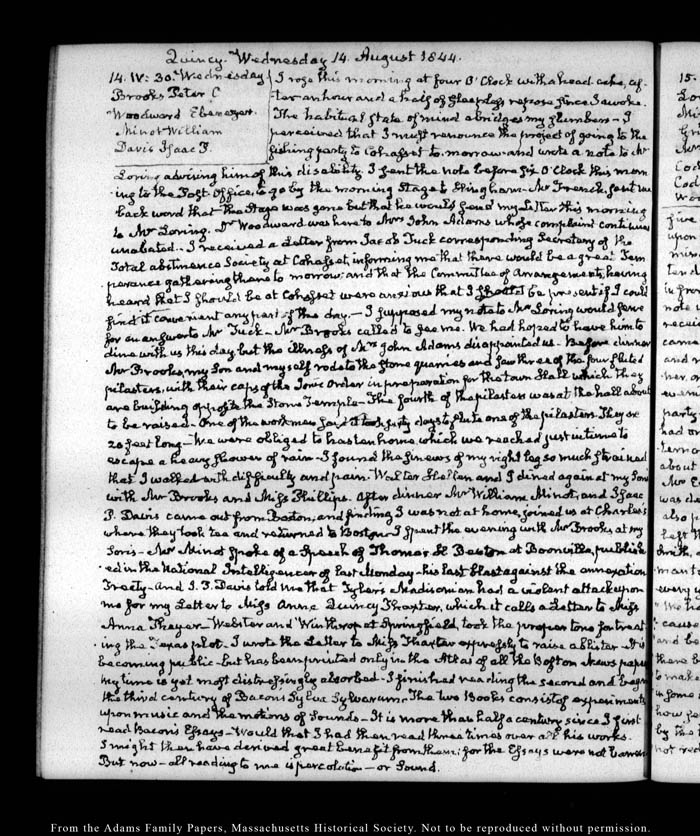 Quincy. Wednesday 14. August 1844.
14. IV: 30. Wednesday
Brooks Peter C
Woodward Ebenezer.
Minot William
Davis Isaac P.
I rose this morning at four O'Clock with a head-ache, af-
ter an hour and a half of sleepless repose since I awoke.
The habitual state of mind abridges my slumbers— I
perceived that I must renounce the project of going to the
fishing party to Cohasset to-morrow and wrote a note to Mr
Loring advising him of this disability. I sent the note before six O'Clock this morn-
ing to the Post-Office, to go by the morning Stage to Hingham— Mr French, sent me
back word that the Stage was gone but that he would send my Letter this morning
to Mr Loring. Dr Woodward was here to Mrs John Adams whose complaint continues
unabated.. I received a Letter from Jacob Tuck corresponding Secretary of the
Total abstinence Society at Cohasset, informing me that there would be a great Tem-
perance gathering there to morrow; and that the Committee of Arrangements, having
heard that I should be at Cohasset were anxious that I should be present if I could
find it convenient any part of the day.— I supposed my note to Mr Loring would serve
for an answer to Mr Tuck— Mr Brooks called to see me. We had hoped to have him to
dine with us this day, but the illness of Mrs John Adams disappointed us— Before dinner
Mr Brooks, my Son and myself rode to the Stone quarries and saw three of the four fluted
pilasters, with their caps of the Ionic Order in preparation for the town Hall which they
are building opposite the Stone Temple— The fourth of the pilasters was at the hall about
to be raised— One of the workmen said it took forty days to flute one of the pilasters. They are
20 feet long— We were obliged to hasten home, which we reached just in time to
escape a heavy shower of rain— I found the sinews of my right leg so much strained
that I walked with difficulty and pain— Walter Hellen and I dined again at my Sons
with Mr Brooks and Miss Phillips. After dinner Mr William Minot, and Isaac
P. Davis came out from Boston, and finding I was not at home, joined us at Charles's
where they took tea and returned to Boston— I spent the evening with Mr Brooks, at my
Son's— Mr Minot spoke of a Speech of Thomas H Benton at Boonville, publish-
ed in the National Intelligencer of last Monday— his last blast against the annexation
Treaty— and I. P. Davis told me that Tyler's Madisonian had a violent attack upon
me for my Letter to Miss Anne Quincy Thaxter, which it calls a Letter to Miss
Anna Thayer— Webster and Winthrop at Springfield, took the proper tone for treat-
ing the Texas plot— I wrote the Letter to Miss Thaxter expressly to raise a blister— It is
becoming public— but has been printed only in the Atlas of all the Boston News papers
my time is yet most distressingly absorbed— I finished reading the second and began
the third century of Bacon's Sylva Sylvarum. The two Books consist of experiments
upon music and the motions of sounds— It is more than half a century since I first
read Bacon's Essays— Would that I had then read three times over all his works.
I might then have derived great benefit from them; for the Essays were not barren
But now— all reading to me is percolation— or Sound.
From the Adams Family Papers, Massachusetts Historical Society. Not to be reproduced without permission.